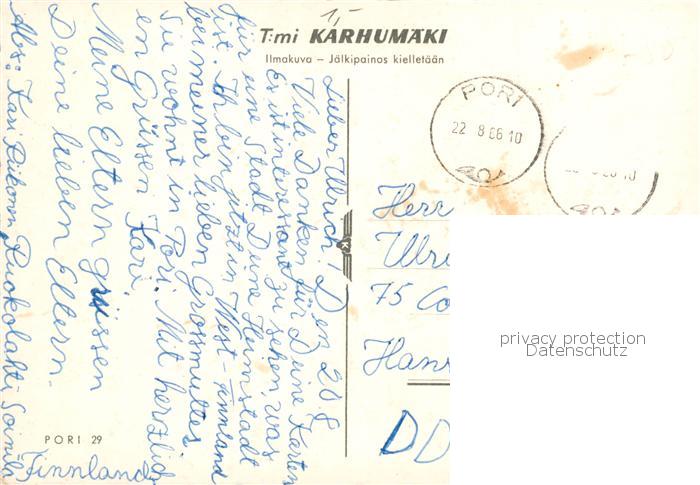 1,-
T:mi KARHUMÄKI
Ilmakuva – Jälkipainos kielletään
Lieber Ulrich! Den 20.8
Viele Danken für Deine Karten
Es ist interessant zu sehen, was
für eine Stadt Deine Heimstadt
ist. Ich bin jetzt in West-Finnland
bei meiner lieben Grossmutter
Sie wohnt in Pori. Mit herzlich
en Grüssen Kari.
Meine Eltern grüssen
Deine lieben Eltern.
Abs: Kari Ruokolahti,
Finnland
PORI
22.8.66 10
401
Herr
Ulri
75
Hans
DD
K
privacy protection
Datenschutz
PORI 29